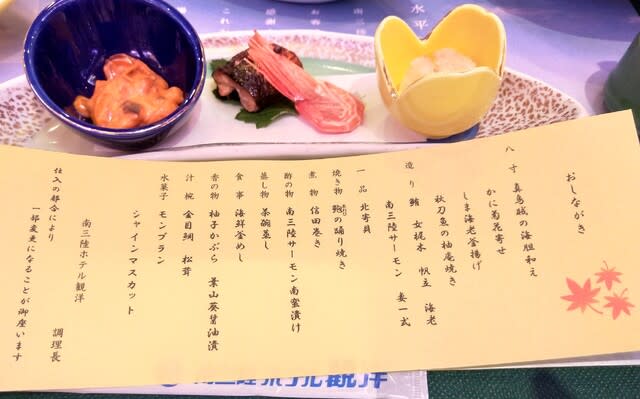 おしながき
八寸 真烏賊の海胆和え
かに菊花寄せ
しま海老釜揚げ
秋刀魚の柚庵焼き
造り 鮪 女梶木 帆立 海老
南三陸サーモン 妻一式
一品 北寄貝
焼き物 鮑の踊り焼き
煮物 信田巻き
酢の物 南三陸サーモン南蛮漬け
蒸し物 茶碗蒸し
食事 海鮮釜めし
香の物 柚子かぶら 葉山葵醤油漬
汁椀 金目鯛 松茸
水菓子 モンブラン
シャインマスカット
南三陸ホテル観洋 調理長
仕入の都合により
一部変更になることが御座います
水平
感謝
南三陸ホテル観洋